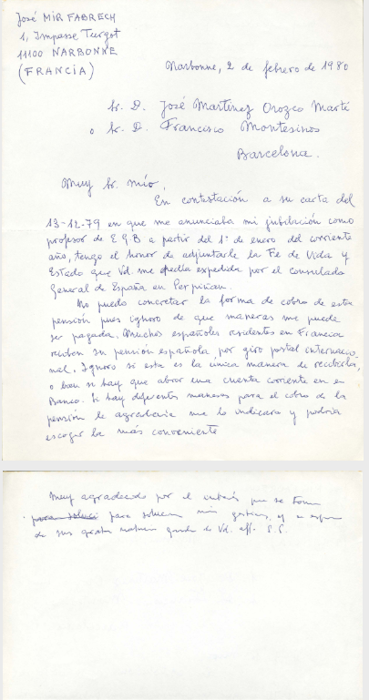 José MIR FABRECH
1, Impasse Turgot
11100 NARBONNE
(FRANCIA)
Narbonne, 2 de febrero de 1980
Sr. D. José Martinez Orozco Marti
o Sr. D. Francisco Montesinos
Barcelona.
Muy Sr. mío,
En contestación a su carta del
13-12-79 en que me anunciaba mi jubilación como
profesor de EGB a partir del 1º de enero del corriente
año, tengo el honor de adjuntarle la Fe de Vida y
Estado que Vd me pedía expedida por el consulado
General de España en Perpiñan.
No puedo concretar la forma de cobro de esta
pensión pues ignoro de que maneras me puede
ser pagada. Muchos españoles residentes en Francia
reciben su pensión española por giro postal internacio
nal. Ignoro si esta es la única manera de recibirla,
o bien si hay que abrir una cuenta corriente en un
Banco. Si hay diferentes maneras para el cobro de la
pensión le agradeceria me lo indicara y podria
escoger la más conveniente
Muy agradecido por el interés que se toma
para soluci para solucionar mis gestiones, y a espera
de sus gratas noticias quedo de Vd. aff. S.S.